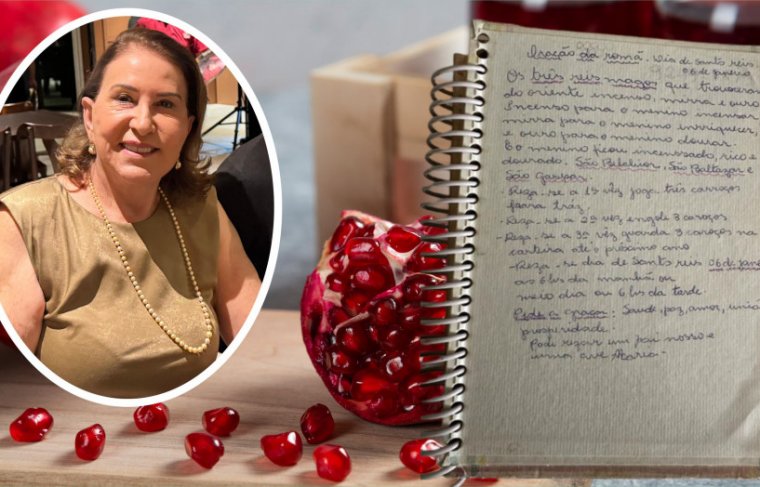 Oração da romã. Dia de Santos reis
06 de janeiro
Os três reis magos que trouxeram
do oriente incenso, mirra e ouro
Incenso para o menino incensar
mirra para o menino inriquecer,
e ouro para o menino dourar.
E o menino ficou incensado, rico e
dourado. São Belchior, São Baltazar e
São Gaspar.
- Reza-se a 1ª vez joga três caroços
para traz
- Reza-se a 2ª vez, engole 3 caroços
- Reza-se a 3ª vez guarda 3 caroços na
carteira até o próximo ano
- Reza-se dia de Santos reis 06 de jane
as 6 hs da manhã ou
meio dia ou 6 hs da tarde
Pede a graça: Saude, paz, amor, união
prosperidade.
Pode rezar um pai nosso e
uma ave Maria.